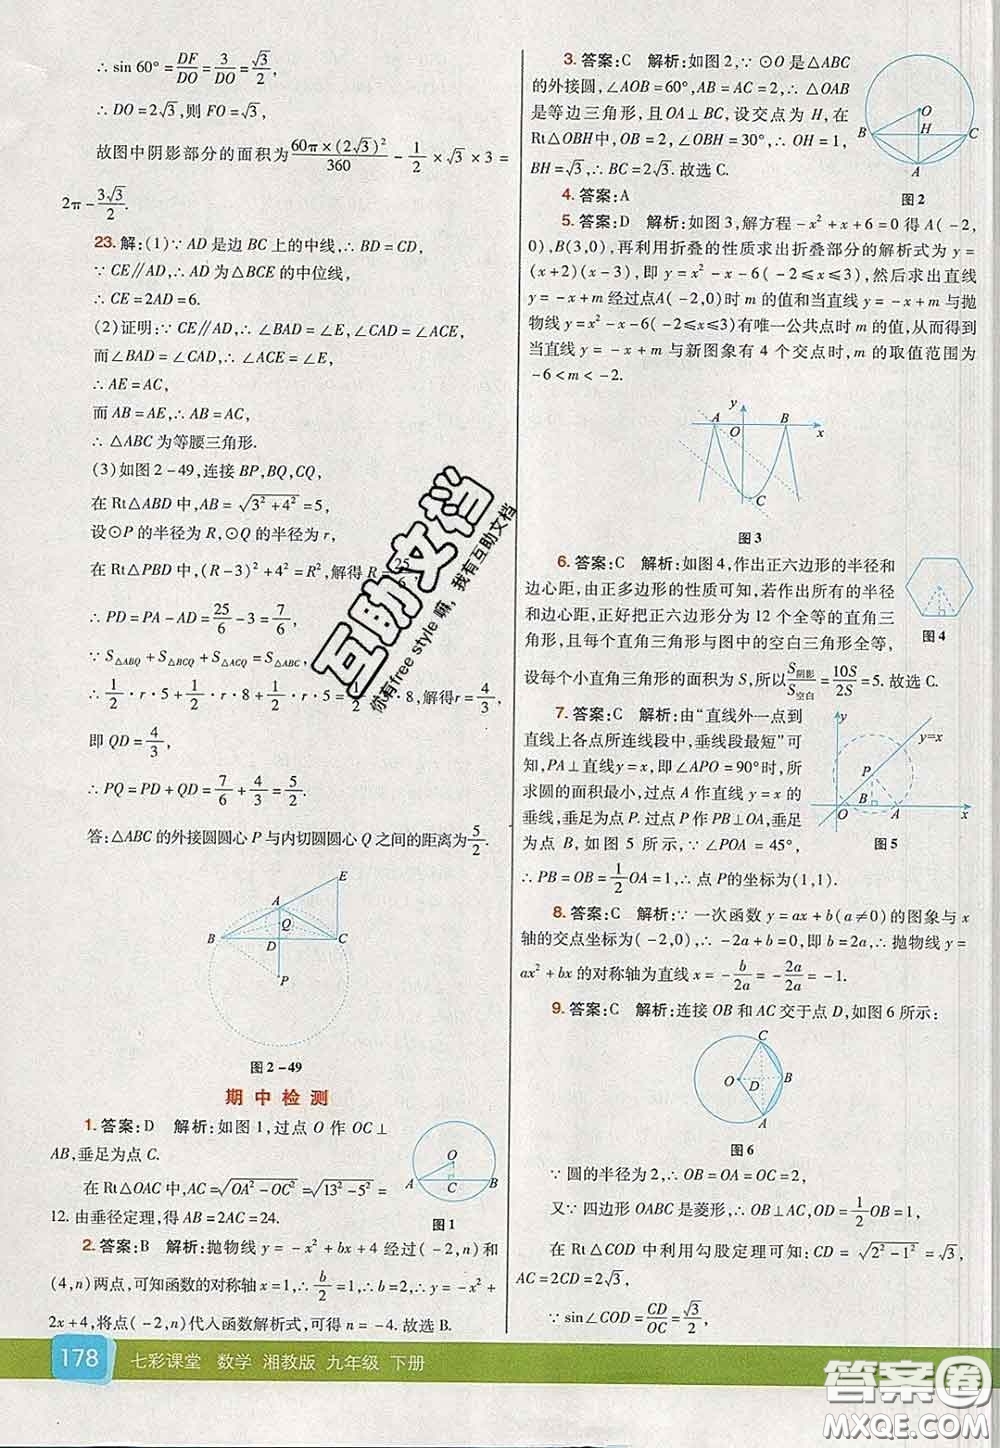 ∴ sin 60° = DF/DO = 3/DO = √3/2,
∴ DO = 2√3,则 FO = √3,
故图中阴影部分的面积为 60π×(2√3)²/360 − 1/2 × √3 × 3 =
2π − 3√3/2.
23.解:(1)∵ AD 是边 BC 上的中线,∴ BD = CD,
∵ CE∥AD,∴ AD 为△BCE 的中位线,
∴ CE = 2AD = 6.
(2)证明:∵ CE∥AD,∴ ∠BAD = ∠E,∠CAD = ∠ACE,
而∠BAD = ∠CAD,∴ ∠ACE = ∠E,
∴ AE = AC,
而 AB = AE,∴ AB = AC,
∴ △ABC 为等腰三角形.
(3)如图 2-49,连接 BP,BQ,CQ,
在 Rt△ABD 中,AB = √(3² + 4²) = 5,
设⊙P 的半径为 R,⊙Q 的半径为 r,
在 Rt△PBD 中,(R-3)² + 4² = R²,解得 R =
∴ PD = PA − AD = 25/6 − 3 = 7/6,
∵ S△ABQ + S△BCQ + S△ACQ = S△ABC,
∴ 1/2 · r · 5 + 1/2 · r · 8 + 1/2 · r · 5 = 1/2 · 8,解得 r = 4/3,
即 QD = 4/3,
∴ PQ = PD + QD = 7/6 + 4/3 = 5/2.
答:△ABC 的外接圆圆心 P 与内切圆圆心 Q 之间的距离为 5/2.
E
A
Q
B
D
C
P
图 2-49
期中检测
1. 答案:D 解析:如图 1,过点 O 作 OC⊥
AB,垂足为点 C.
在 Rt△OAC 中,AC = √(OA² − OC²) = √(13² − 5²) =
12. 由垂径定理,得 AB = 2AC = 24.
O
A
C
B
图 1
2. 答案:B 解析:抛物线 y = −x² + bx + 4 经过(-2,n)和
(4,n)两点,可知函数的对称轴 x = 1,∴ b/2 = 1,∴ b = 2,∴ y = −x² +
2x + 4,将点(-2,n)代入函数解析式,可得 n = -4. 故选 B.
3. 答案:C 解析:如图 2,∵ ⊙O 是△ABC
的外接圆,∠AOB = 60°,AB = AC = 2,∴ △OAB
是等边三角形,且 OA⊥BC,设交点为 H,在
Rt△OBH 中,OB = 2,∠OBH = 30°,∴ OH = 1,
BH = √3,∴ BC = 2√3. 故选 C.
O
B
H
C
A
图 2
4. 答案:A
5. 答案:D 解析:如图 3,解方程 −x² + x + 6 = 0 得 A(-2,
0),B(3,0),再利用折叠的性质求出折叠部分的解析式为 y =
(x+2)(x-3),即 y = x² − x − 6(-2≤x≤3),然后求出直线
y = −x + m 经过点A(-2,0)时 m 的值和当直线 y = −x + m 与抛
物线 y = x² − x − 6(-2≤x≤3)有唯一公共点时 m 的值,从而得到
当直线 y = −x + m 与新图象有 4 个交点时,m 的取值范围为
-6 < m < -2.
y
A
B
O
x
C
图 3
6. 答案:C 解析:如图 4,作出正六边形的半径和
边心距,由正多边形的性质可知,若作出所有的半径
和边心距,正好把正六边形分为 12 个全等的直角三
角形,且每个直角三角形与图中的空白三角形全等,
设每个小直角三角形的面积为 S,所以 S阴影/S空白 = 10S/2S = 5. 故选 C.
图 4
7. 答案:C 解析:由“直线外一点到
直线上各点所连线段中,垂线段最短”可
知,PA⊥直线y=x,即∠APO = 90°时,所
求圆的面积最小,过点 A 作直线 y = x 的
垂线,垂足为点 P. 过点 P 作 PB⊥OA,垂足
为点 B,如图 5 所示,∵ ∠POA = 45°,
∴ PB = OB = 1/2 OA = 1,∴ 点 P的坐标为(1,1).
y
y=x
P
B
O
A
x
图 5
8. 答案:C 解析:∵ 一次函数 y = ax + b(a≠0)的图象与 x
轴的交点坐标为(-2,0),∴ -2a + b = 0,即 b = 2a,∴ 抛物线 y =
ax² + bx 的对称轴为直线 x = −b/2a = −2a/2a = −1.
9. 答案:C 解析:连接 OB 和 AC 交于点 D,如图 6 所示:
C
O
D
B
A
图 6
∵ 圆的半径为 2,∴ OB = OA = OC = 2,
又∵ 四边形 OABC 是菱形,∴ OD = 1/2 OB = 1,
在 Rt△COD 中利用勾股定理可知:CD = √(2² − 1²) = √3,
AC = 2CD = 2√3,
∵ sin∠COD = CD/OC = √3/2,
互助文档
你有free style 嘛,我有互助文档
178 七彩课堂 数学 湘教版 九年级 下册
答案圈
MXQE.COM